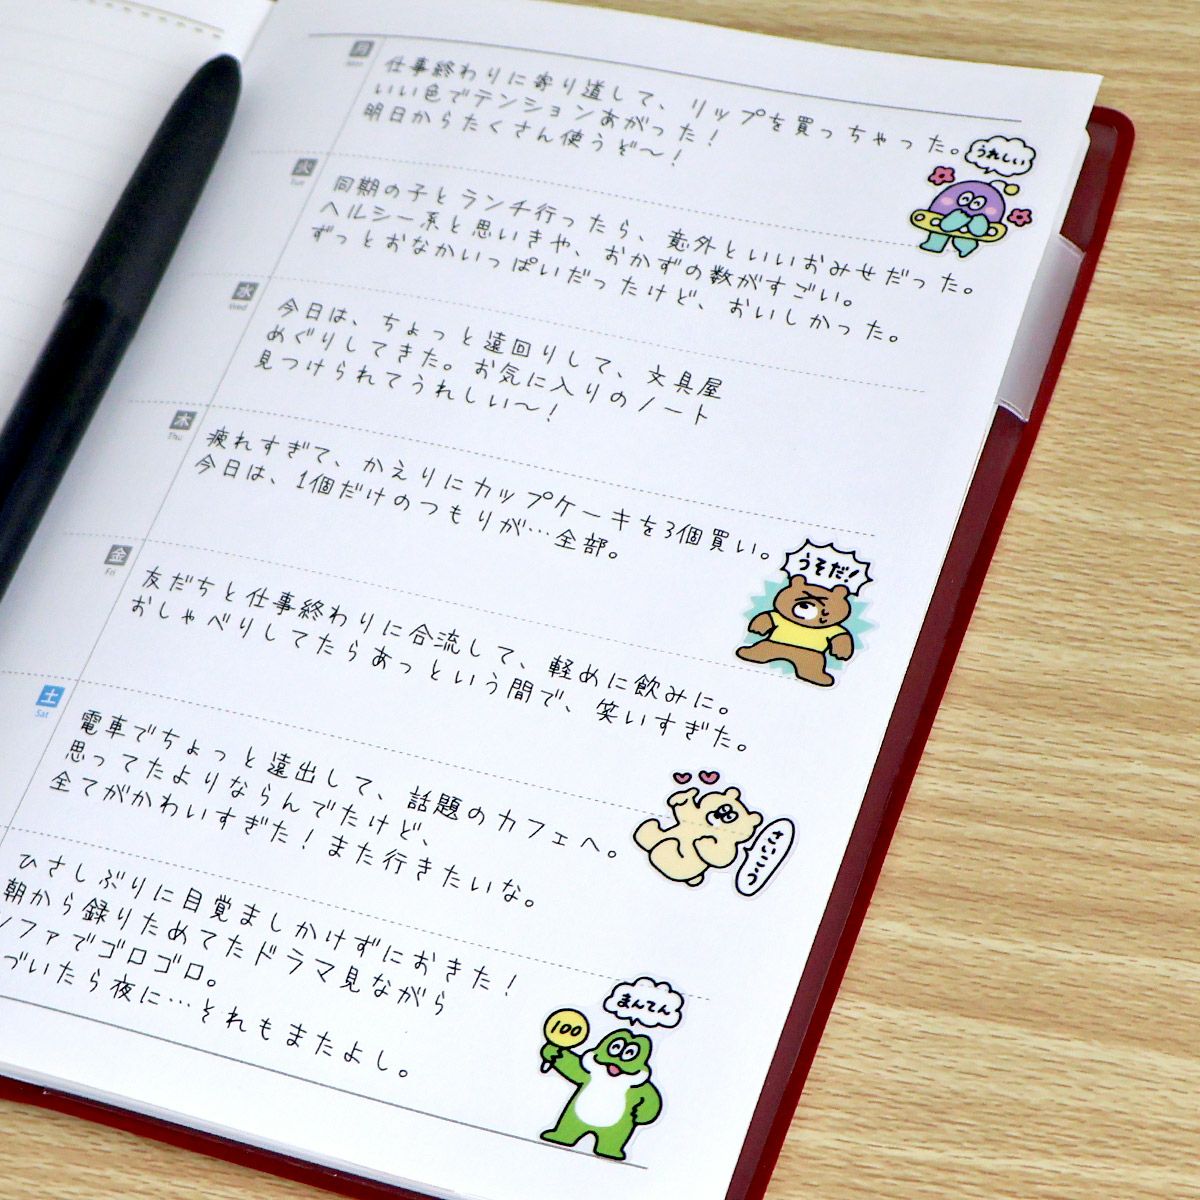 月
Mon
仕事終わりに寄り道して、リップを買っちゃった。
いい色でテンションあがった！
明日からたくさん使うぞ〜！
うれしい
火
Tue
同期の子とランチ行ったら、意外といいおみせだった。
ヘルシー系と思いきや、おかずの数がすごい。
ずっとおなかいっぱいだったけど、おいしかった。
水
Wed
今日は、ちょっと遠回りして、文具屋
めぐりしてきた。お気に入りのノート
見つけられてうれしい〜！
木
Thu
疲れすぎて、かえりにカップケーキを3個買い。
今日は、1個だけのつもりが…全部。
うそだ！
金
Fri
友だちと仕事終わりに合流して、軽めに飲みに。
おしゃべりしてたらあっという間で、笑いすぎた。
土
Sat
電車でちょっと遠出して、話題のカフェへ。
思ってたよりならんでたけど、
全てがかわいすぎた！また行きたいな。
さいこう
ひさしぶりに目覚ましかけずにおきた！
朝から録りためてたドラマ見ながら
ソファでゴロゴロ。
づいたら夜に…それもまたよし。
まんてん
100